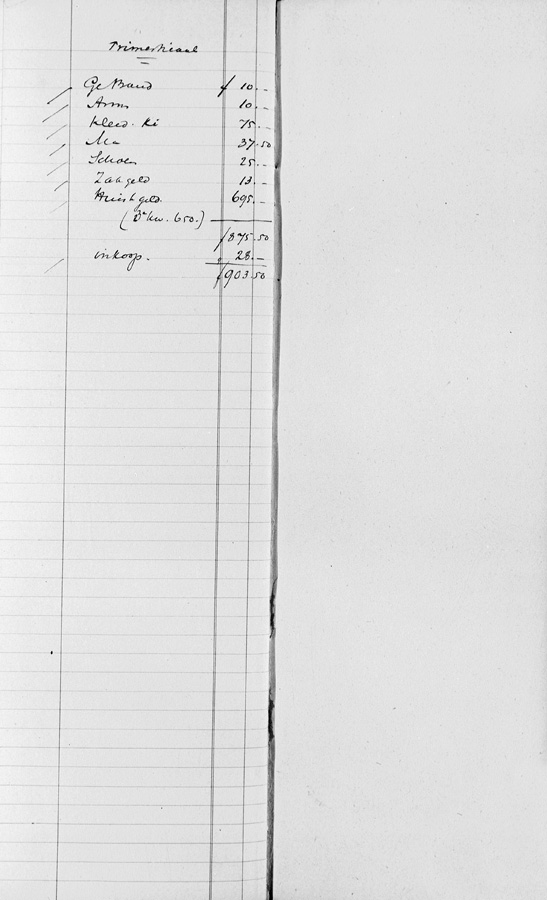 Trimestriaal
Ge Brand f 10.–
Arms 10.–
Kleed. Ki 75.–
Ma 37.50
Schoen 25.–
Zakgeld 13.–
Huishgeld. 695.–
(3e kw. 650.)
f 875.50
inkoop. " 28.–
f 903.50